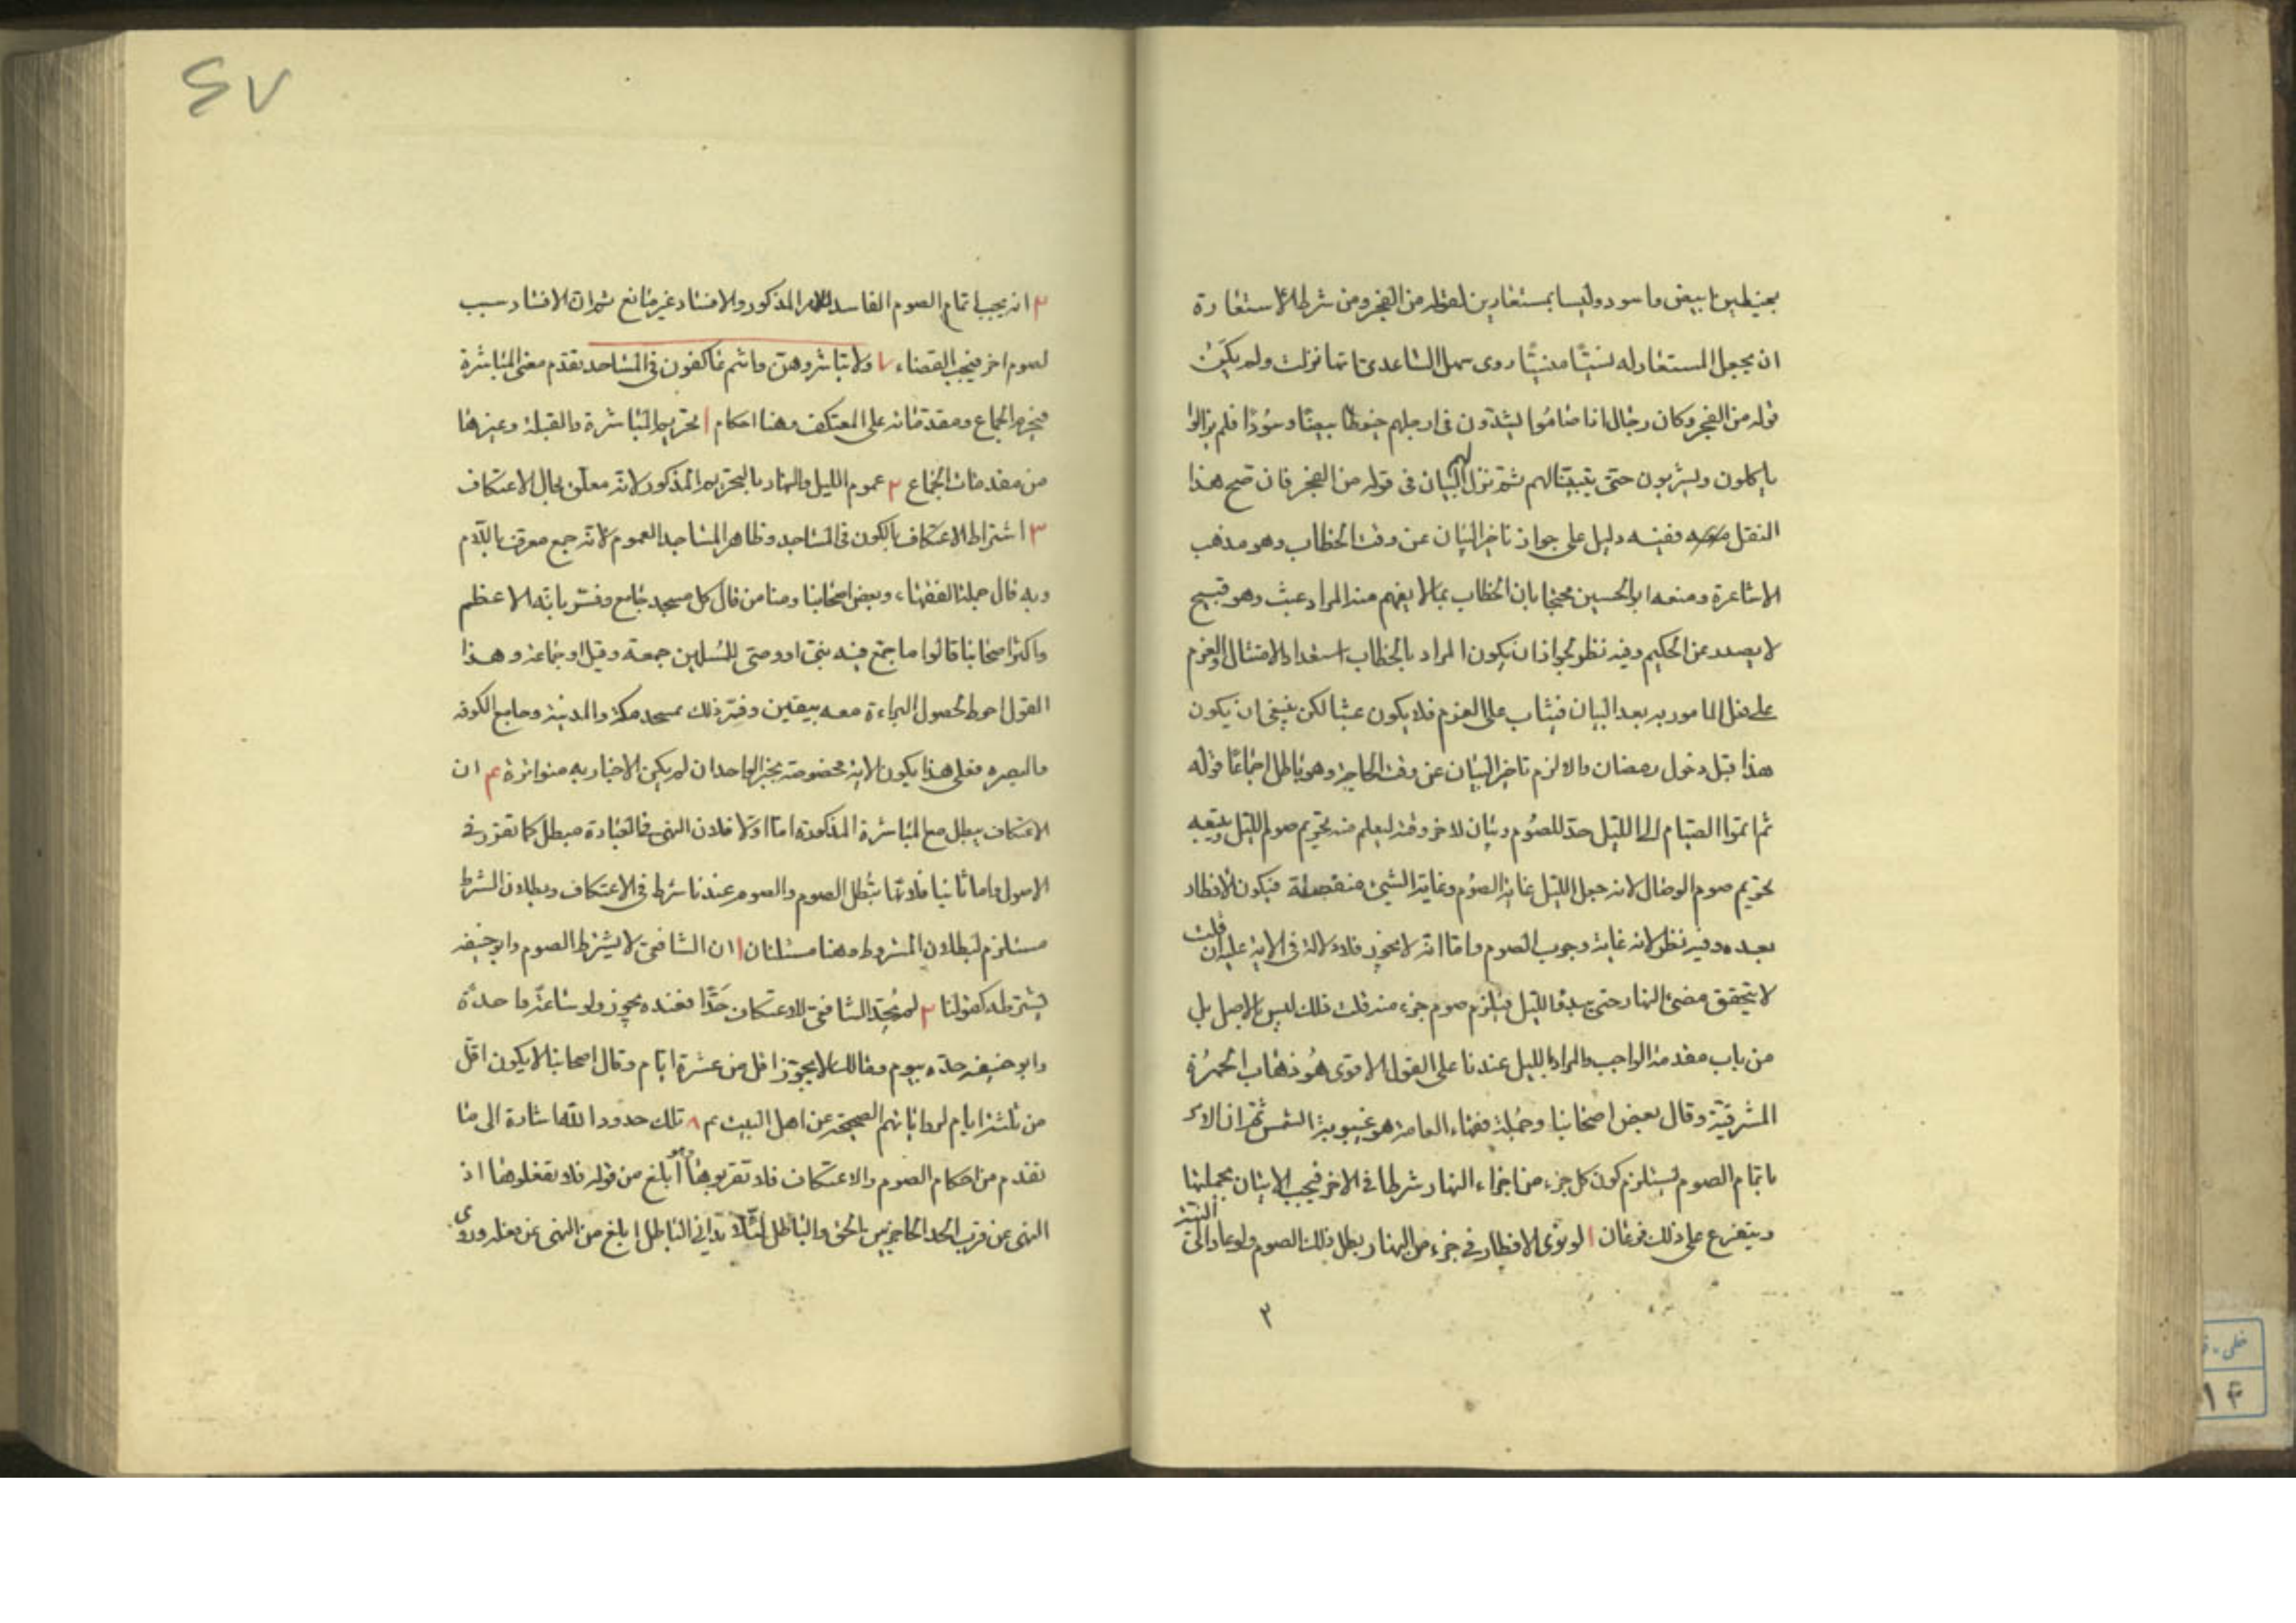 بخيطين ابيض واسود وليسا بمستعارين لقوله من الفجر ومن شرط الاستعارة
ان يجعل المستعار له نسيًا منسيًا روى سهل الساعدى انها نزلت ولم يكن
قوله من الفجر وكان رجال اذا صاموا يشدّون فى ارجلهم خيوطا بيضا وسودًا فلم يزالوا
ياكلون ويشربون حتى يتبينا لهم ثم نزل لهم البيان فى قوله من الفجر فان صح هذا
النقل ففيه دليل على جواز تاخير البيان عن وقت الخطاب وهو مذهب
الاشاعرة ومنعه ابو الحسين محتجا بان الخطاب بما لا يفهم منه المراد عبث وهو قبيح
لا يصدر عن الحكيم وفيه نظر لجواز ان يكون المراد بالخطاب استعداد الامتثال والعزم
على فعل المامور به بعد البيان فيثاب على العزم فلا يكون عبثا لكن ينبغى ان يكون
هذا قبل دخول رمضان والا لزم تاخير البيان عن وقت الحاجة وهو باطل اجماعًا قوله
ثم اتموا الصيام الى الليل حدّ للصوم وبيان لاخر وقته ليعلم منه تحريم صوم الليل ويتبعه
تحريم صوم الوصال لانه جعل الليل غاية الصوم وغاية الشئ منفصلة فيكون الافطار
بعده وفيه نظر لانه غاية وجوب الصوم واما انه لا يجوز فلا دلالة فى الاية عليه ان قلت
لا يتحقق مضى النهار حتى يدخل الليل فيلزم صوم جزء منه قلت ذلك ليس بالاصل بل
من باب مقدمة الواجب والمراد بالليل عندنا على القول الاقوى هو ذهاب الحمرة
المشرقيّة وقال بعض اصحابنا وجملة فقهاء العامة هو غيبوبة الشمس ثم ان الامر
باتمام الصوم يستلزم كون كل جزء من اجزاء النهار شرطا فى الاخر فيجب الاتيان بجملتها
ويتفرع على ذلك فرعان ١ لو نوى الافطار فى جزء من النهار بطل ذلك الصوم ولو عاد الى النية
٢
٤٧
٢ انه يجب اتمام الصوم الفاسد للامر المذكور والافساد غير مانع ثم ان الافساد سبب
لصوم اخر فيجب القضاء ٧ ولا تباشروهنّ وانتم عاكفون فى المساجد تقدم معنى المباشرة
فيحرم الجماع ومقدماته على المعتكف وهنا احكام ١ تحريم المباشرة بالقبلة وغيرها
من مقدمات الجماع ٢ عموم الليل والنهار بالتحريم المذكور لانه معلق بحال الاعتكاف
٣ اشتراط الاعتكاف بالكون فى المساجد وظاهر المساجد العموم لانه جمع معرف باللام
وبه قال جملة الفقهاء وبعض اصحابنا ومنا من قال كل مسجد جامع وفسر بانه الاعظم
واكثر اصحابنا قالوا ما جمّع فيه نبىّ او وصى للمسلمين جمعة وقيل او جماعة وهذا
القول احوط لحصول البراءة معه بيقين وفسّر ذلك بمسجد مكة والمدينة وجامع الكوفة
والبصره فعلى هذا يكون الاية مخصوصة بخبر الواحد ان لم يكن الاخبار به متواترة ٤ ان
الاعتكاف يبطل مع المباشرة المذكورة اما اولا فلان النهى فى العبادة مبطل كما تقرر فى
الاصول واما ثانيا فلانها تبطل الصوم والصوم عندنا شرط فى الاعتكاف وبطلان الشرط
مستلزم لبطلان المشروط وهنا مسئلتان ١ ان الشافعى لا يشترط الصوم وابو حنيفه
يشترطه كقولنا ٢ لم يحدّ الشافعى للاعتكاف حدّا فعنده يجوز ولو ساعة واحدة
وابو حنيفه حدّه بيوم ومالك لا يجوّز اقل من عشرة ايام وقال اصحابنا لا يكون اقل
من ثلثة ايام لرواياتهم الصحيحة عن اهل البيت ع م ٨ تلك حدود الله اشارة الى ما
تقدم من احكام الصوم والاعتكاف فلا تقربوها وهو ابلغ من قوله فلا تفعلوها اذ
النهى عن قرب الحد الحاجز بين الحق والباطل لئلا يدانى الباطل ابلغ من النهى عن فعله وروى